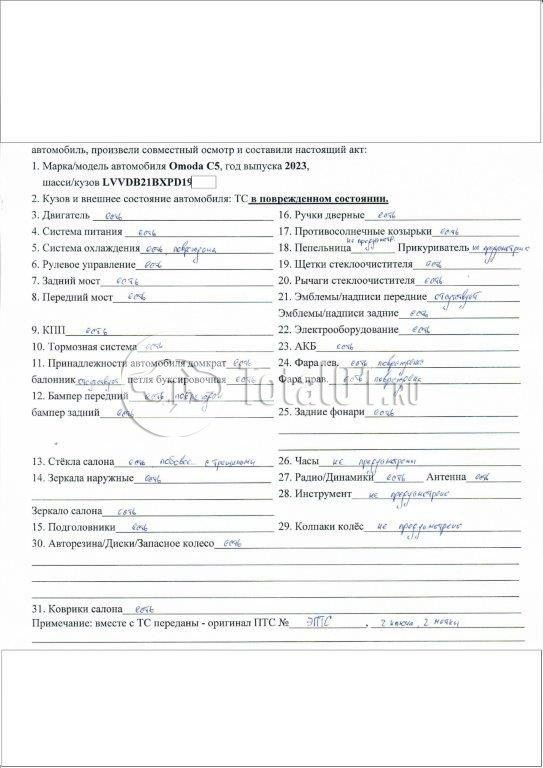 автомобиль, произвели совместный осмотр и составили настоящий акт:
1. Марка/модель автомобиля Omoda C5, год выпуска 2023,
шасси/кузов LVVDB21BXPD19
2. Кузов и внешнее состояние автомобиля: ТС в поврежденном состоянии.
3. Двигатель есть
4. Система питания есть
5. Система охлаждения есть, повреждена
6. Рулевое управление есть
7. Задний мост есть
8. Передний мост есть
9. КПП есть
10. Тормозная система есть
11. Принадлежности автомобиля домкрат есть
балонник отсутствует петля буксировочная есть
12. Бампер передний есть поврежден
бампер задний есть
13. Стёкла салона есть лобовое с трещинами
14. Зеркала наружные есть
Зеркало салона есть
15. Подголовники есть
16. Ручки дверные есть
17. Противосолнечные козырьки есть
18. Пепельница не предусмотр Прикуриватель не предусмотрен
19. Щетки стеклоочистителя есть
20. Рычаги стеклоочистителя есть
21. Эмблемы/надписи передние отсутствует
Эмблемы/надписи задние есть
22. Электрооборудование есть
23. АКБ есть
24. Фара лев. есть повреждена
Фара прав. есть повреждена
25. Задние фонари есть
26. Часы не предусмотрены
27. Радио/Динамики есть Антенна есть
28. Инструмент не предусмотрено
29. Колпаки колёс не предусмотрено
30. Авторезина/Диски/Запасное колесо есть
31. Коврики салона есть
Примечание: вместе с ТС переданы - оригинал ПТС № ЭПТС , 2 ключа, 2 метки
Total01.ru